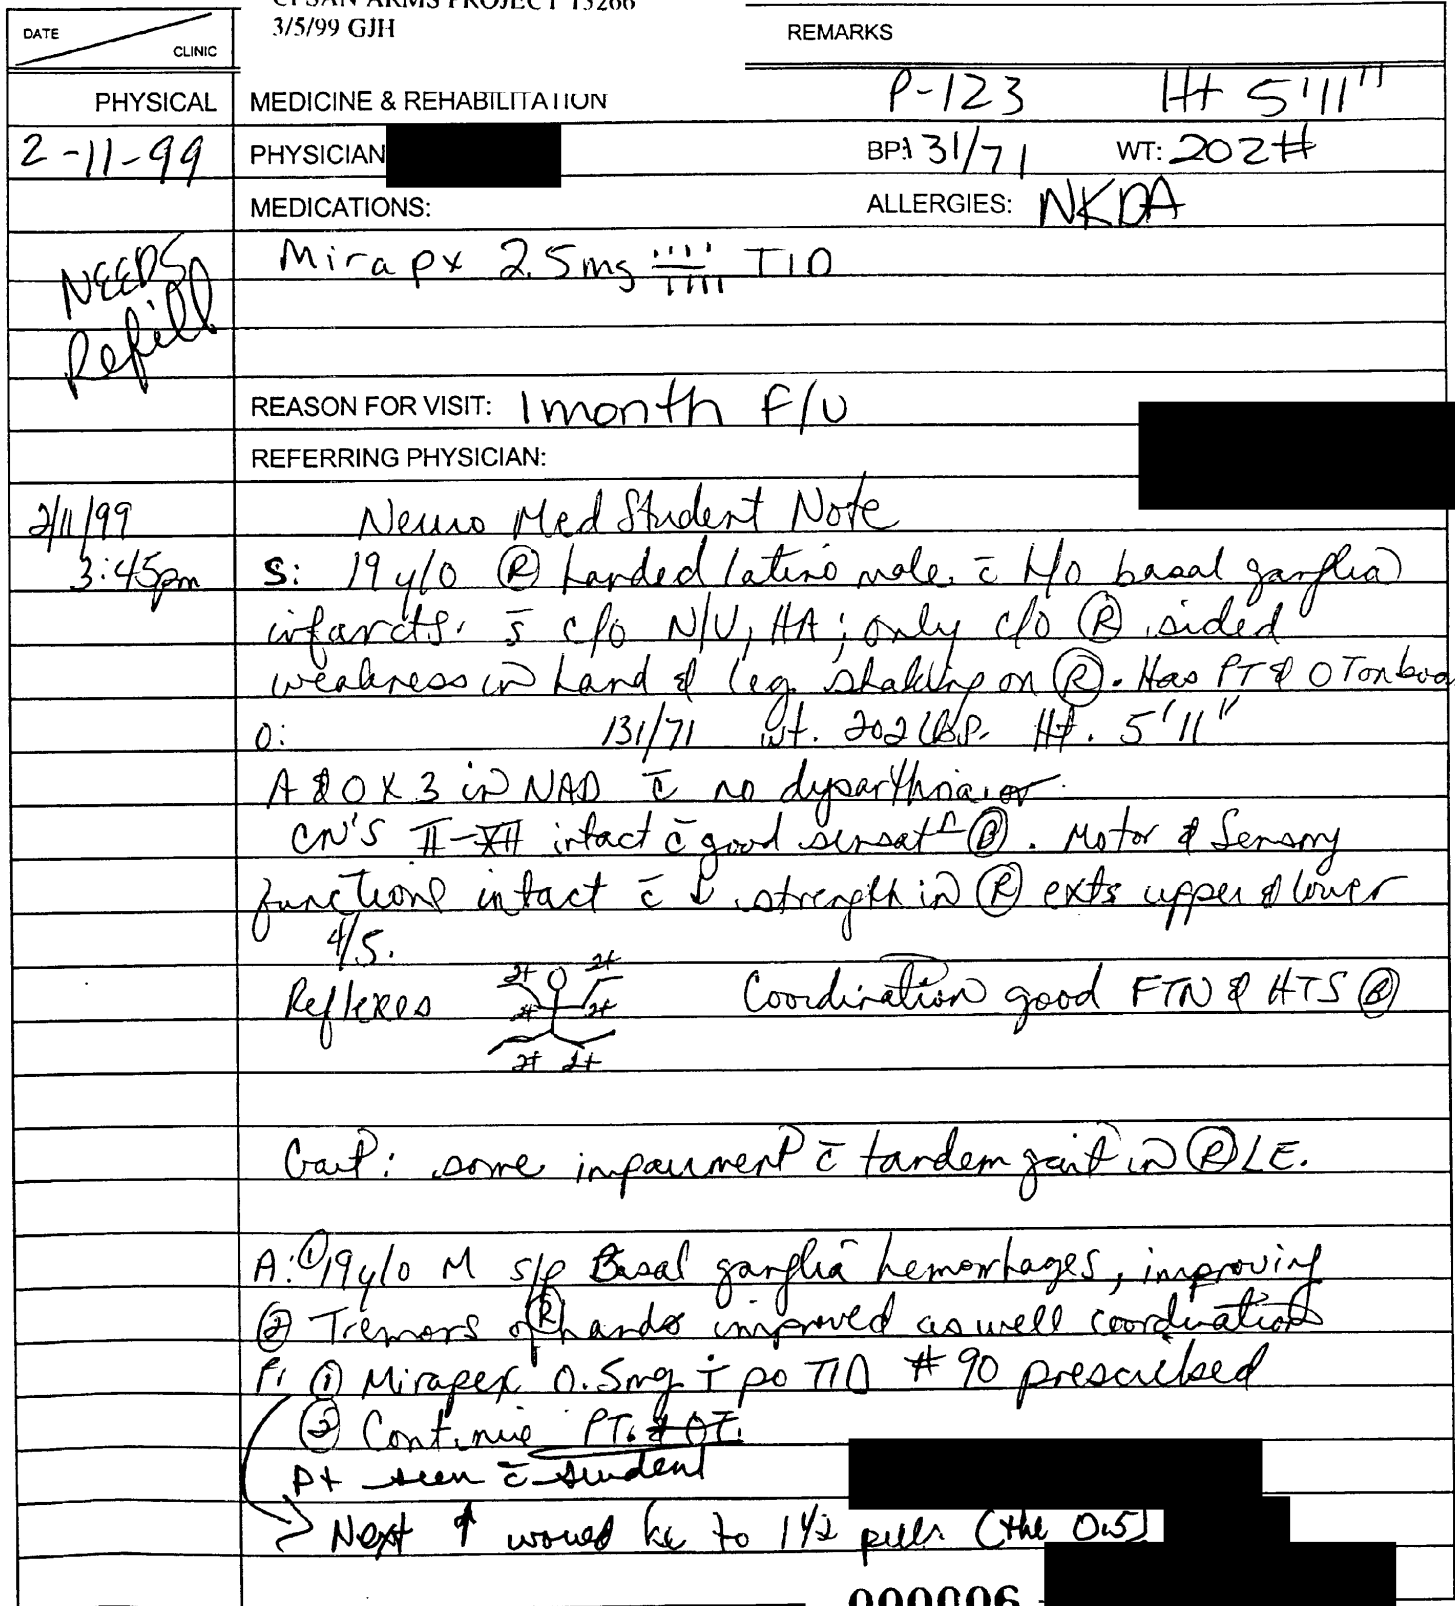 CPSAN ARMS PROJECT 13266
3/5/99 GJH
DATE CLINIC
REMARKS
PHYSICAL MEDICINE & REHABILITATION P-123 Ht 5'11"
2-11-99 PHYSICIAN BP: 131/71 WT: 202#
MEDICATIONS: ALLERGIES: NKDA
NEEDS Refill
Mirapx 2.5mg TID
REASON FOR VISIT: 1 month F/U
REFERRING PHYSICIAN:
2/11/99 Neuro Med Student Note
3:45pm S: 19 y/o Ⓡ handed latino male c̄ H/o basal ganglia
infarcts. s̄ c/o N/V, HA; only c/o Ⓡ sided
weakness in hand & leg. shaking on Ⓡ. Has PT & OT
O: 131/71 wt. 202 lbs. Ht. 5'11"
A & O X 3 in NAD c̄ no dysarthria or
CN'S II-XII intact c̄ good sensat Ⓑ. Motor & Sensory
functions intact c̄ ↓ strength in Ⓡ exts upper & lower
4/5.
Reflexes 2+ 2+ 2+ 2+ 2+ 2+ Coordination good FTN & HTS Ⓑ
Gait: some impairment c̄ tandem gait in Ⓡ LE.
A: ① 19 y/o M s/p Basal ganglia hemorrhages, improving
② Tremors of Ⓡ hands improved as well coordination
P: ① Mirapex 0.5mg ṫ po TID # 90 prescribed
② Continue PT. & OT.
Pt seen c̄ student
Next ↑ would be to 1½ pills (the 0.5)
000006